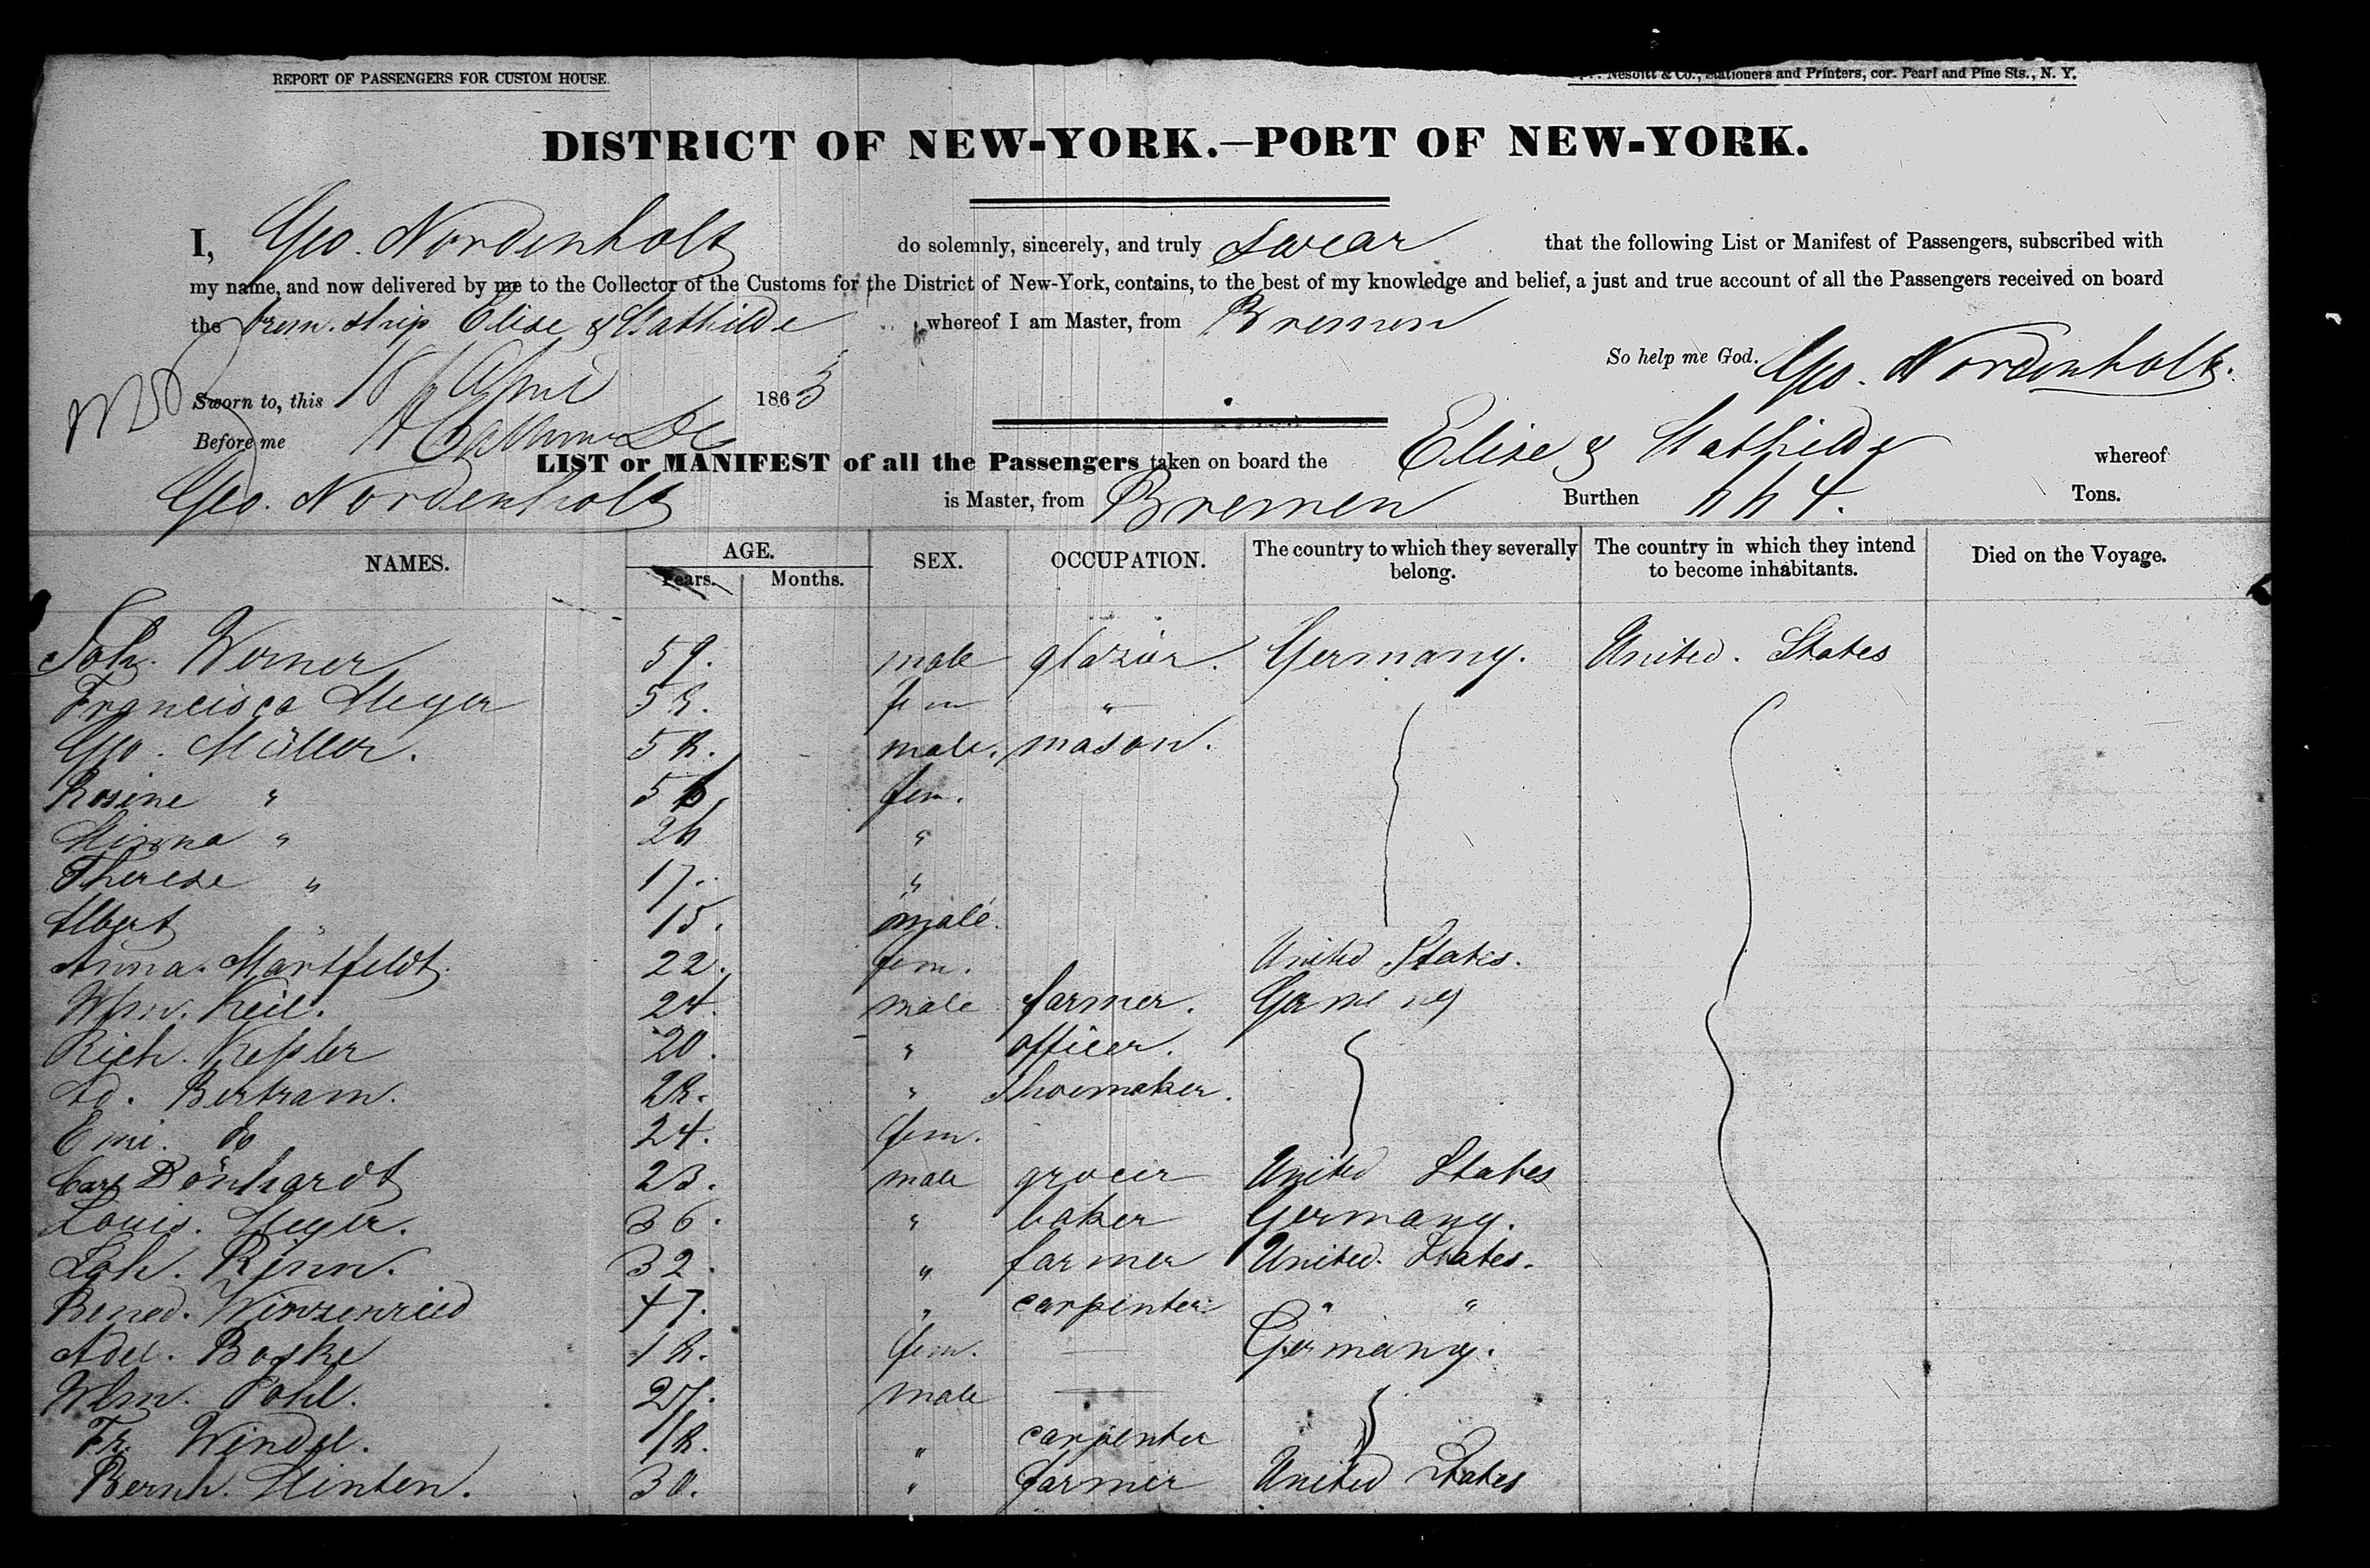 REPORT OF PASSENGERS FOR CUSTOM HOUSE.
Nesbitt & Co., Stationers and Printers, cor. Pearl and Pine Sts., N. Y.
DISTRICT OF NEW-YORK.—PORT OF NEW-YORK.
I, Geo. Nordenholt do solemnly, sincerely, and truly swear that the following List or Manifest of Passengers, subscribed with
my name, and now delivered by me to the Collector of the Customs for the District of New-York, contains, to the best of my knowledge and belief, a just and true account of all the Passengers received on board
the brem. ship Elise & Mathilde whereof I am Master, from Bremen
So help me God. Geo. Nordenholt.
Sworn to, this 18 April 1863
Before me
LIST or MANIFEST of all the Passengers taken on board the Elise & Mathilde whereof
Geo. Nordenholt is Master, from Bremen Burthen Tons.
NAMES. AGE. Years. Months. SEX. OCCUPATION. The country to which they severally belong. The country in which they intend to become inhabitants. Died on the Voyage.
Joh. Werner 59. male glazier. Germany. United. States
Francisca Meyer 58. fem "
Geo. Müller. 58. male. mason.
Rosine " 56. fem.
Minna " 26 "
Therese " 17. "
Albert " 15. male.
Anna. Martfeldt. 22. fem. United States.
Wlm. Keil. 24. male farmer. Germany
Rich. Keßler 20. " officer.
Ad. Bertram. 28. " Shoemaker.
Emi. do 24. fem.
Carl Dönhardt 23. male grocer United States
Louis. Meyer. 36. " baker Germany.
Joh. Rinn. 32. " farmer United. States.
Bened. Winzenried 47. " carpenter " "
Adel. Boske 18. fem. — Germany.
Wlm. Pohl. 27. male —
Fr. Windel. 18. " carpenter
Bernh. Hinten. 30. " farmer United States